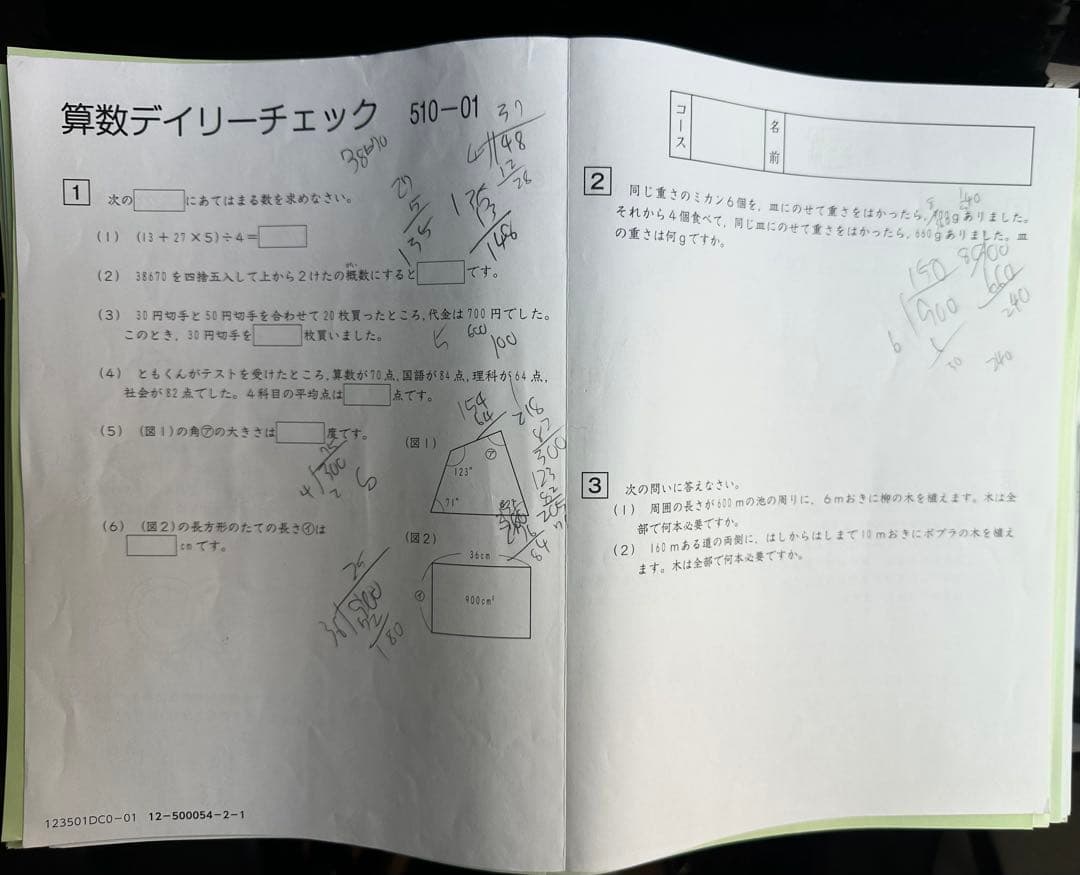 算数デイリーチェック 510-01
1 次の にあてはまる数を求めなさい。
(1) (13+27×5)÷4=
(2) 38670を四捨五入して上から2けたの概数にすると です。
がい
(3) 30円切手と50円切手を合わせて20枚買ったところ,代金は700円でした。
このとき,30円切手を 枚買いました。
(4) ともくんがテストを受けたところ,算数が70点,国語が84点,理科が64点,
社会が82点でした。4科目の平均点は 点です。
(5) (図1)の角㋐の大きさは 度です。
(図1)
㋐
123°
71°
(6) (図2)の長方形のたての長さ㋑は
cmです。
(図2)
36cm
㋑
900cm²
38670
37
4 148
12
28
27
5
135
135
13
148
5
600
100
154
64
218
82
300
75
4 300
25
36 900
72
180
123
82
205
84
123501DC0-01 12-500054-2-1
コース
名前
2 同じ重さのミカン6個を,皿にのせて重さをはかったら, gありました。
それから4個食べて,同じ皿にのせて重さをはかったら,660gありました。皿
の重さは何gですか。
240
150
6 900
900
660
240
30
240
3 次の問いに答えなさい。
(1) 周囲の長さが600mの池の周りに、6mおきに柳の木を植えます。木は全
部で何本必要ですか。
(2) 160mある道の両側に、はしからはしまで10mおきにポプラの木を植え
ます。木は全部で何本必要ですか。